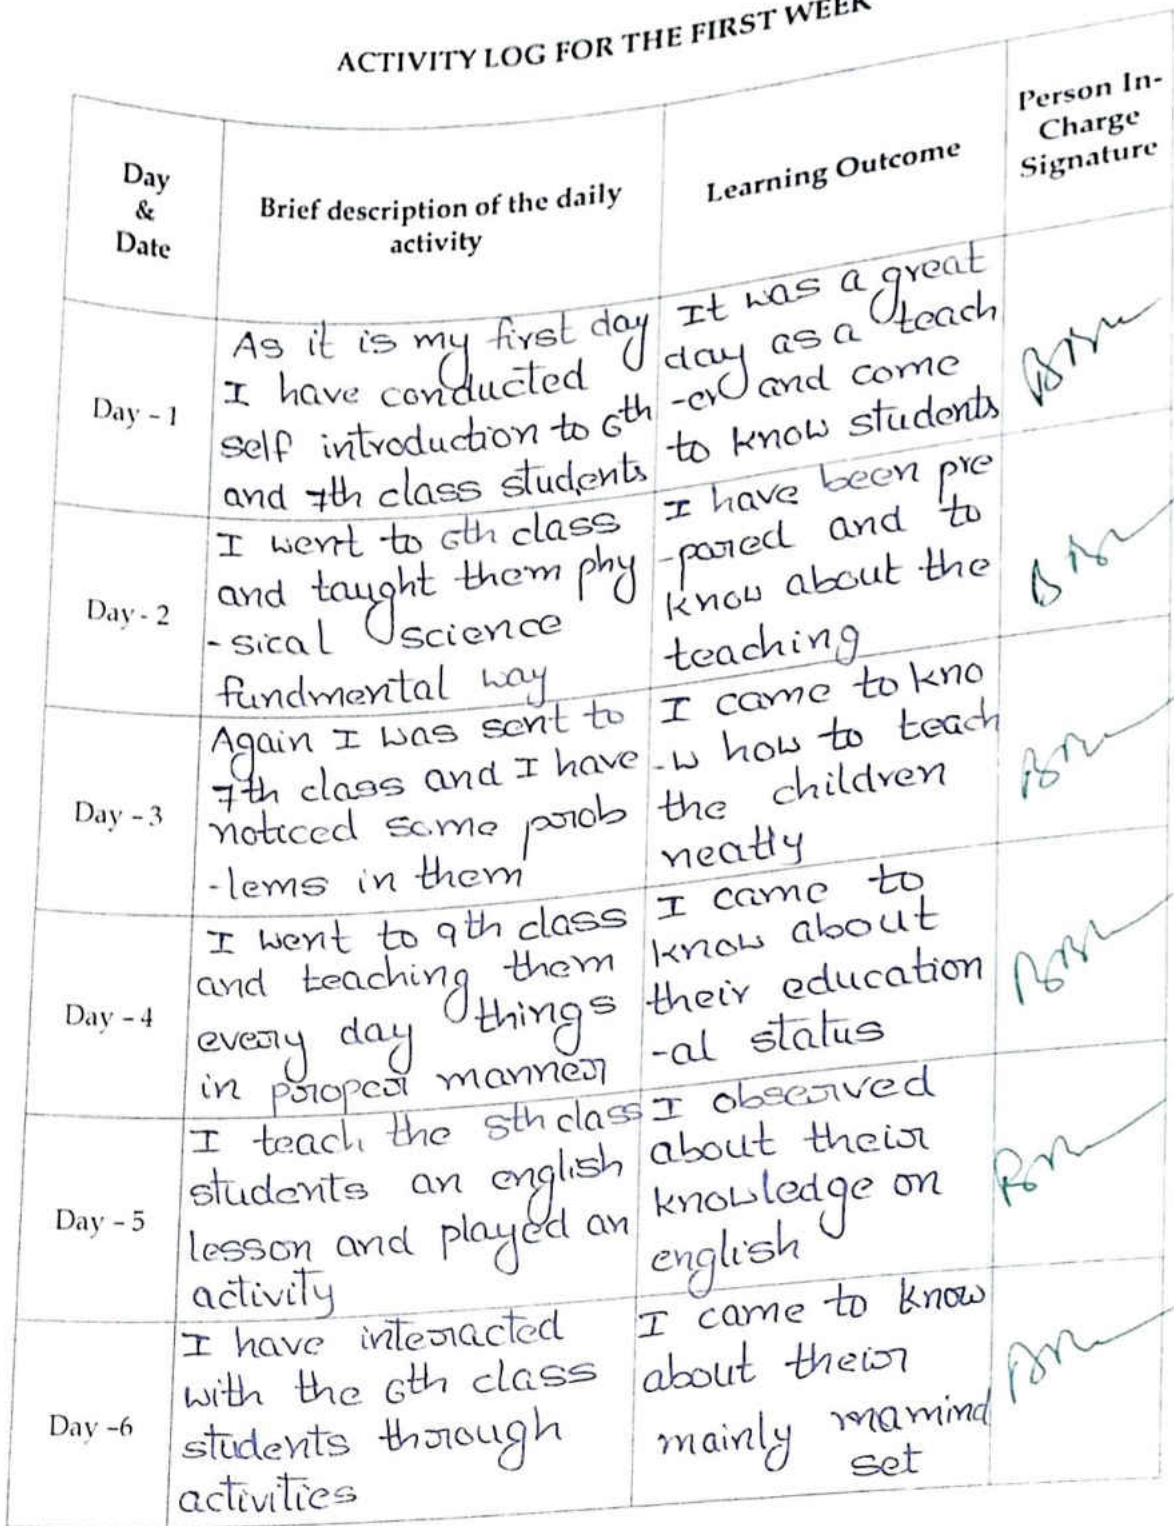 ACTIVITY LOG FOR THE FIRST WEEK
Day
&
Date
Brief description of the daily
activity
Learning Outcome
Person In-
Charge
Signature
Day - 1
As it is my first day
I have conducted
self introduction to 6th
and 7th class students
It was a great
day as a teach
-er and come
to know students
Day - 2
I went to 6th class
and taught them phy
-sical science
fundmental way
I have been pre
-pared and to
know about the
teaching
Day - 3
Again I was sent to
7th class and I have
noticed some prob
-lems in them
I came to kno
-w how to teach
the children
neatly
Day - 4
I went to 9th class
and teaching them
every day things
in proper manner
I came to
know about
their education
-al status
Day - 5
I teach the 8th class
students an english
lesson and played an
activity
I observed
about their
knowledge on
english
Day -6
I have interacted
with the 6th class
students through
activities
I came to know
about their
mainly mamind
set